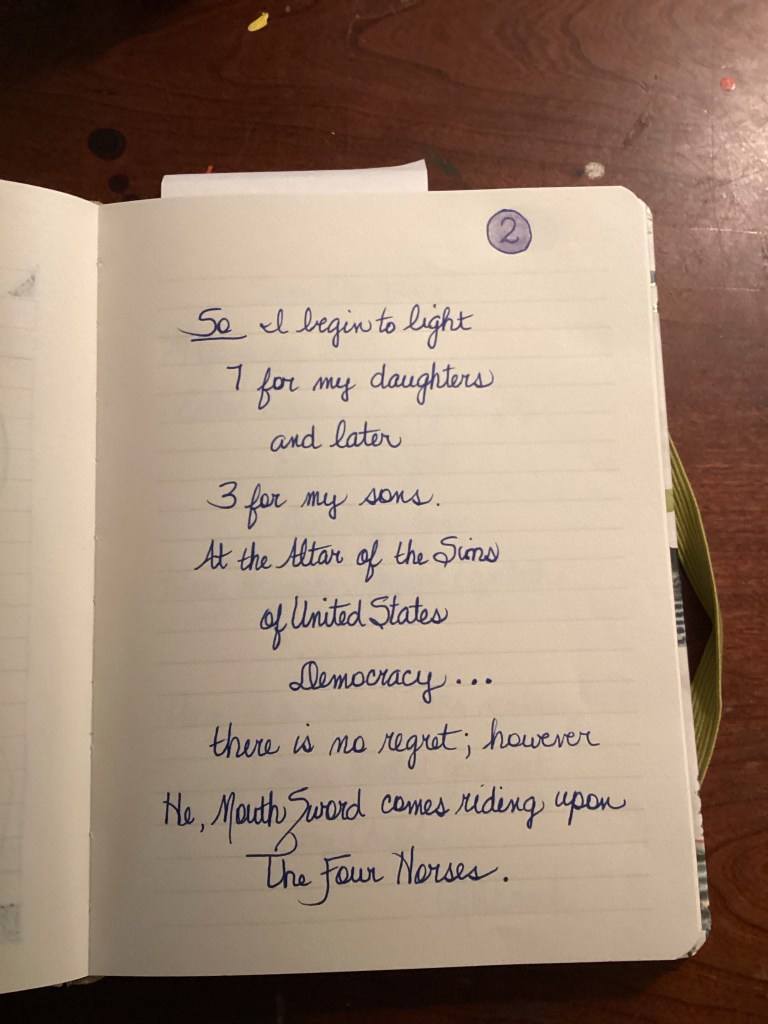 2
So I begin to light
7 for my daughters
and later
3 for my sons.
At the Altar of the Sins
of United States
Democracy...
there is no regret; however
He, Mouth Sword comes riding upon
The Four Horses.